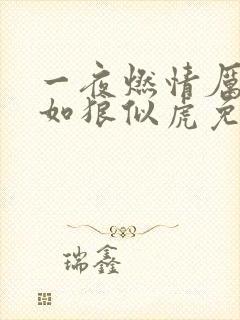 一夜燃情厲
如狼似虎免
瑞鑫